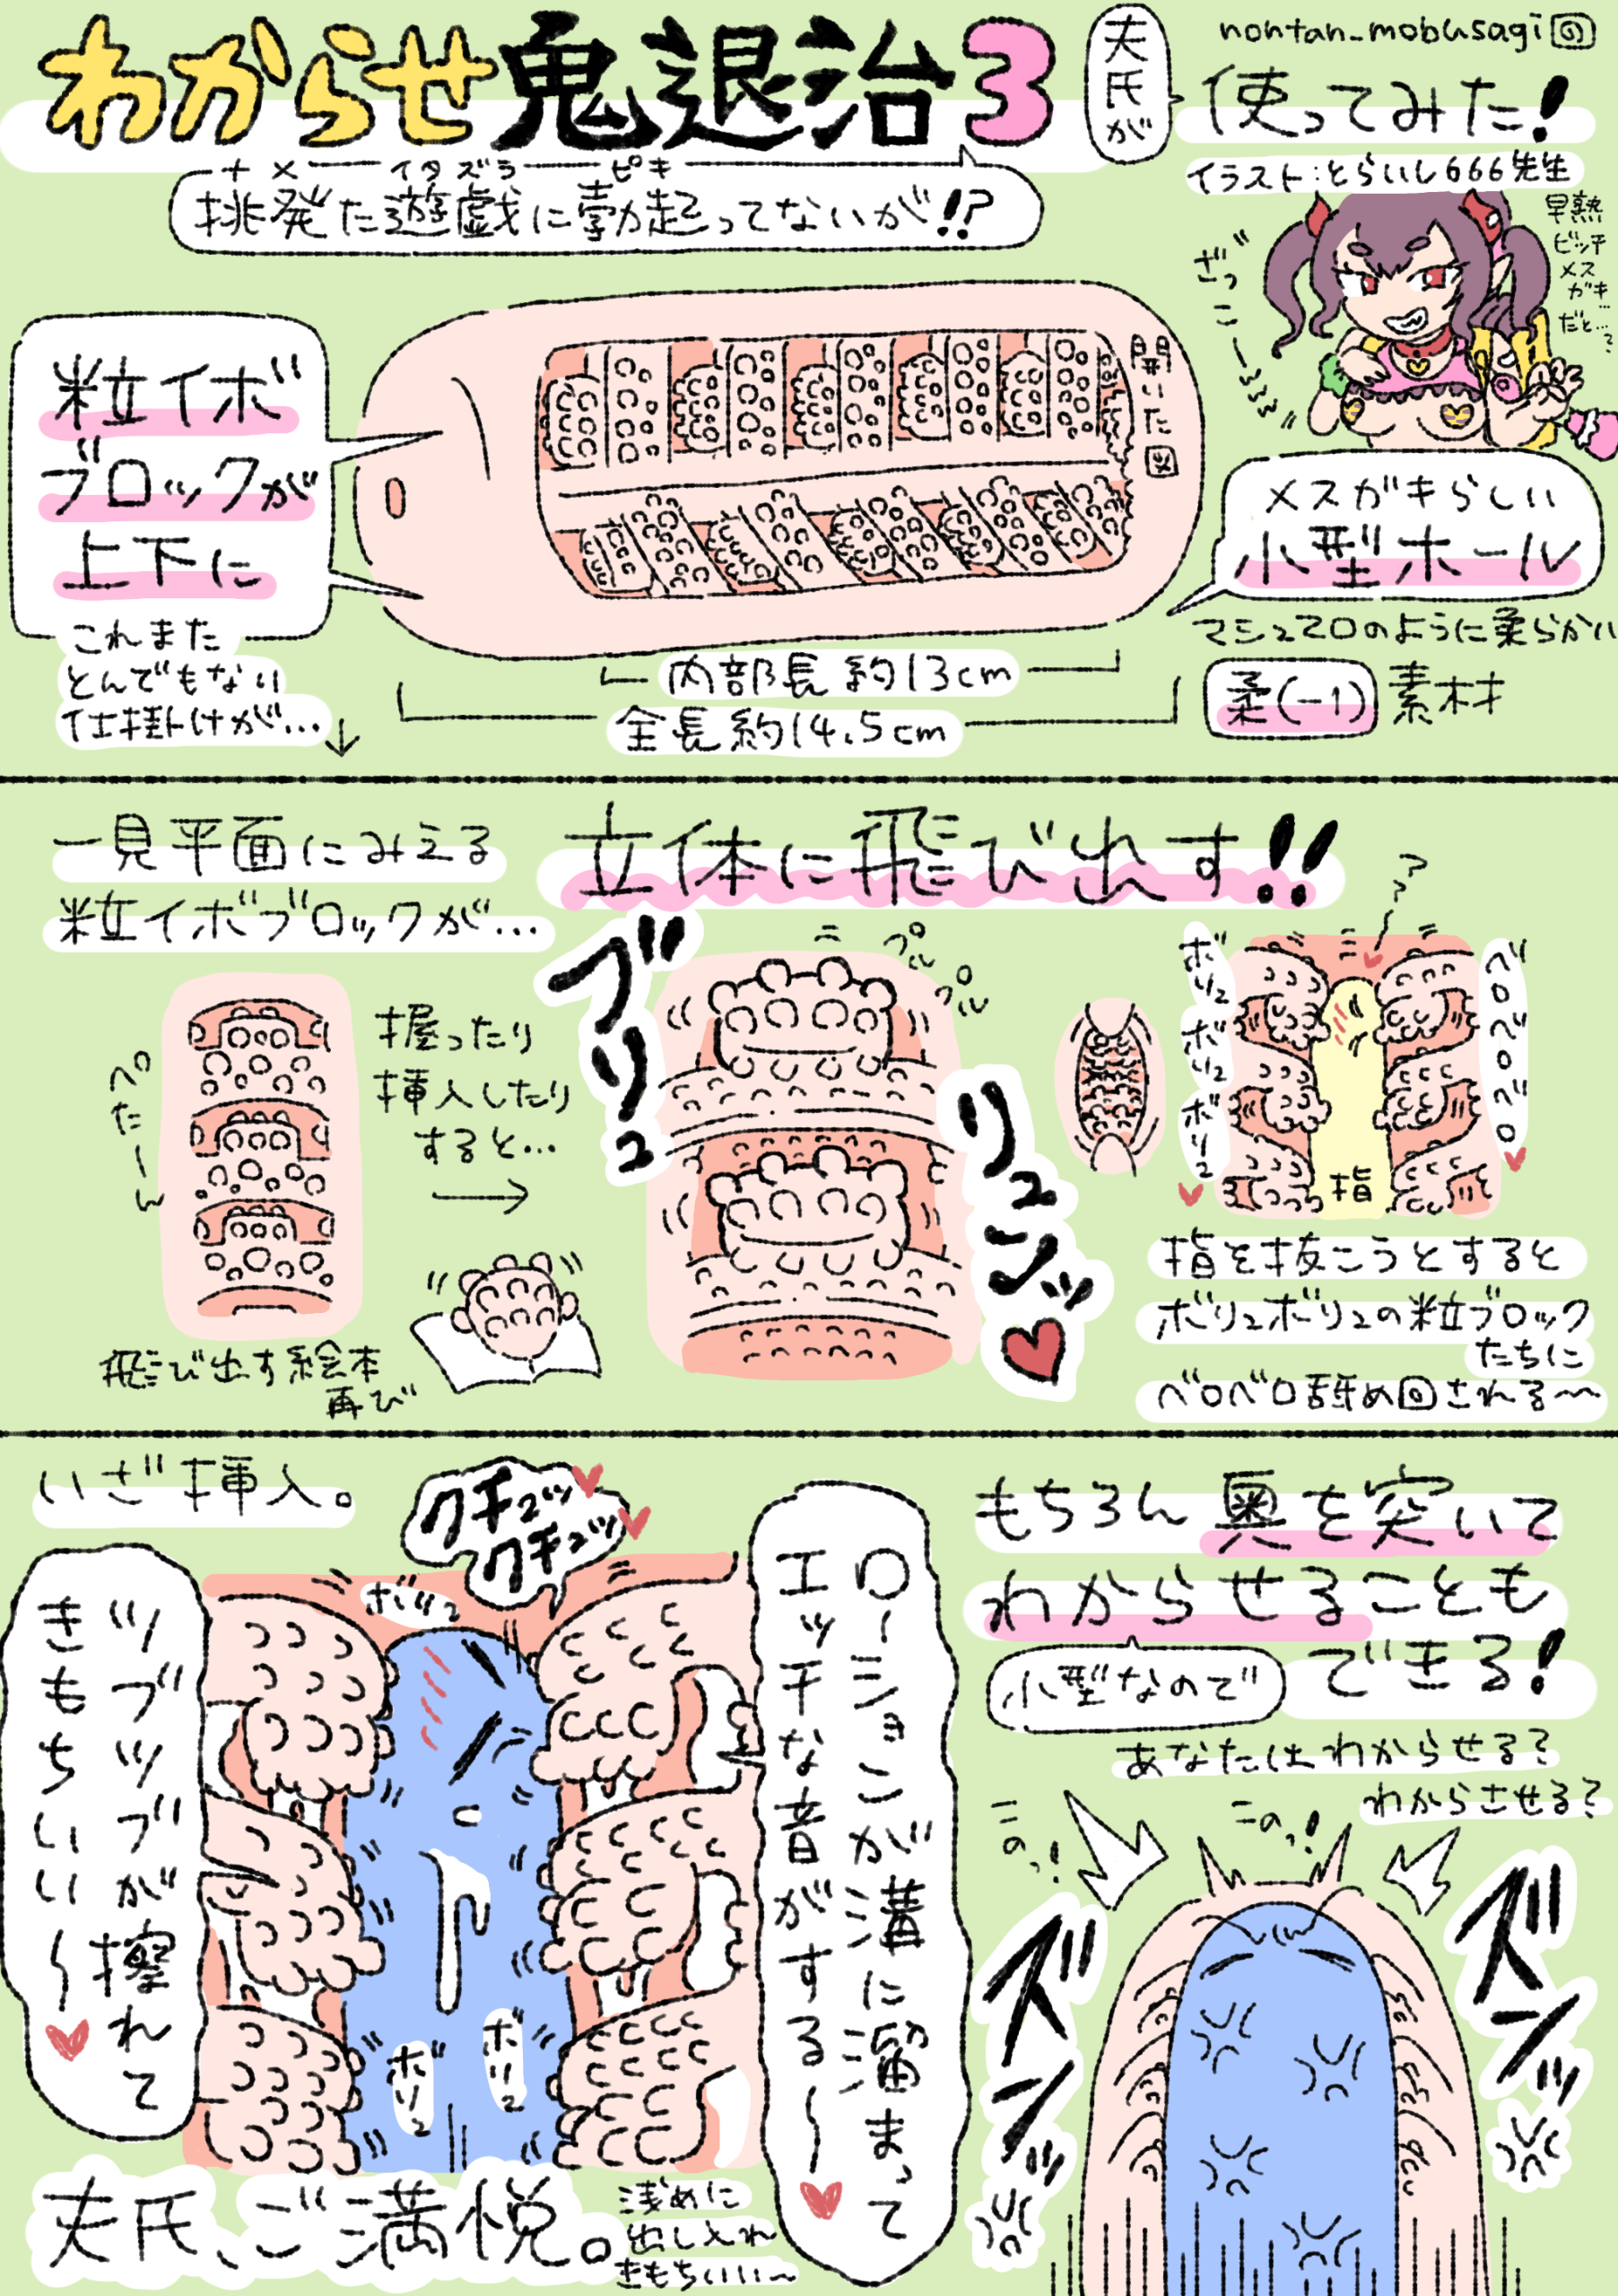 わからせ鬼退治3
夫氏が
使ってみた!
nontan_mobusagi
ナメ イタズラ ピキ
挑発た遊戯に勃起ってないが!?
イラスト:とらいし666先生
早熟
ビッチ
メス
ガキ…
だと…?
ざっこ〜
開いた図
粒イボ
ブロックが
上下に
これまた
とんでもない
仕掛けが…↓
メスガキらしい
小型ホール
マシュマロのように柔らかい
柔(-1)素材
内部長約13cm
全長約14.5cm
一見平面にみえる
粒イボブロックが…
立体に飛び出す!!
ぺたーん
握ったり
挿入したり
すると…
→
飛び出す絵本
再び
ブリュ
リュンッ
プル
プル
ボリュボリュボリュ
ベロベロベロ
指
指を抜こうとすると
ボリュボリュの粒ブロック
たちに
ベロベロ舐め回される〜
いざ挿入。
クチュッ
クチュッ
ボリュ
ツブツブが擦れて
きもちいい〜
ローションが溝に溜まって
エッチな音がする〜
ボリュ
ボリュ
夫氏、ご満悦。
浅めに
出し入れ
きもちいい〜
もちろん奥を突いて
わからせることも
できる!
小型なので
あなたはわからせる?
わからさせる?
このっ!
このっ!
ズンッ
ズンッ